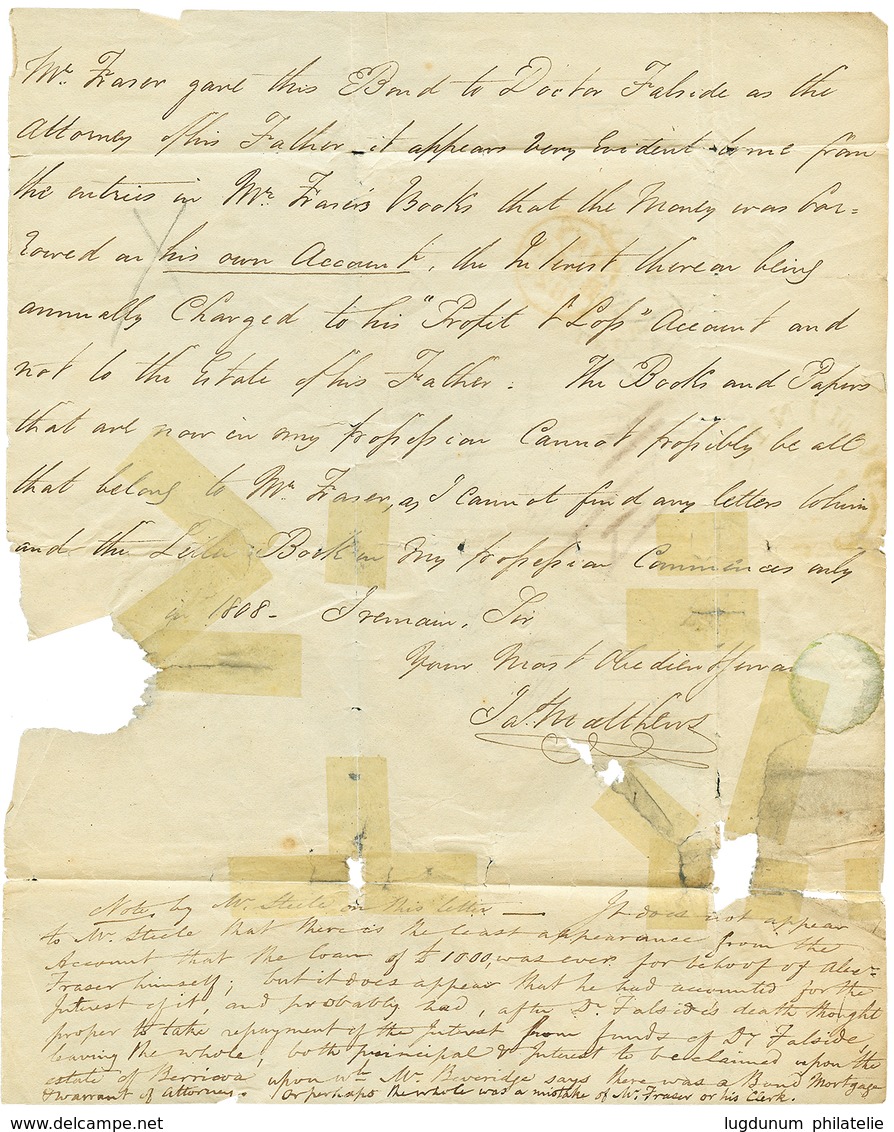 Mr. Fraser gave this Bond to Doctor Falside as the
Attorney of his Father, it appears very Evident to me from
the entries in Mr. Fraser's Books that the Money was bor=
rowed on his own Account, the Interest thereon being
annually Charged to his "Profit & Loss" Account and
not to the Estate of his Father. The Books and Papers
that are now in my possession Cannot possibly be all
that belong to Mr. Fraser, as I cannot find any letters to him
and the Letter Book in my possession Commences only
in 1808. I remain, Sir
Your Most Obedient
Jas. Matthews
Note by Mr. Steele on this letter — It does not appear
to Mr. Steele that there is the least appearance from the
Account that the loan of £1000, was ever for behoof of Alexr.
Fraser himself; but it does appear that he had accounted for the
Interest of it, and probably had, after Dr. Falside's death thought
proper to take repayment of the Interest from funds of Dr. Falside,
leaving the whole, both principal & Interest to be claimed upon the
estate of Berricoa, upon wh. Mr. Beveridge says there was a Bond Mortgage
& warrant of Attorney. Or perhaps the whole was a mistake of Mr. Fraser or his Clerk.
www.delcampe.net
lugdunum philatelie